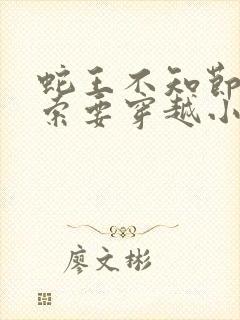 蛇王不知节
索要穿越小
廖文彬